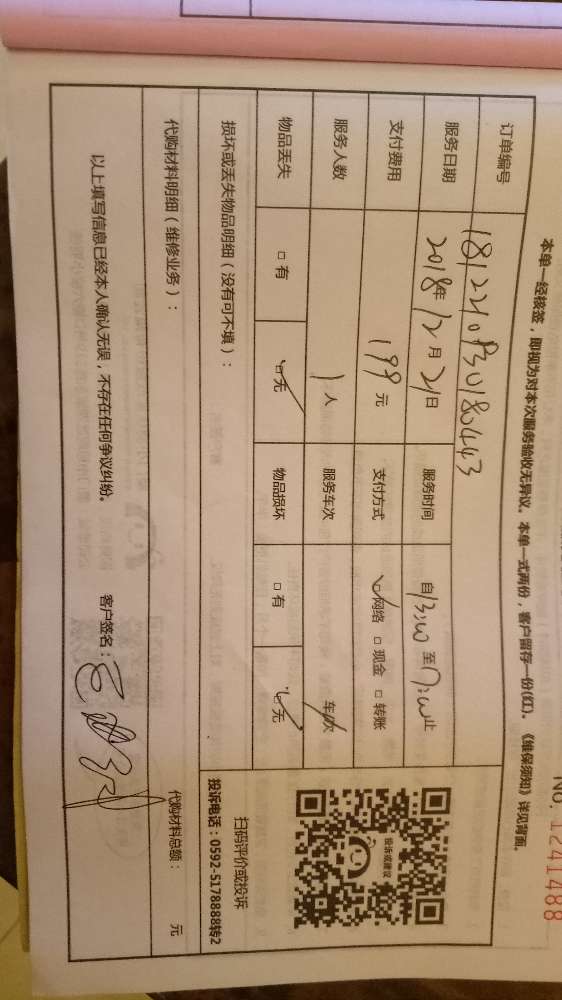 No. 1241488
本单一经核签，即视为对本次服务验收无异议。本单一式两份，客户留存一份(红)。《维保须知》详见背面。
订单编号
服务日期 2018年12月21日 服务时间 自13:00 至17:00止
支付费用 199元 支付方式 网络 □ 现金 □ 转账
服务人数 1人 服务车次 车/次
物品丢失 □ 有 无 物品损坏 □ 有 无
损坏或丢失物品明细（没有可不填）：
投诉或建议
扫码评价或投诉
投诉电话：0592-5178888转2
代购材料明细（维修业务）： 代购材料总额： 元
以上填写信息已经本人确认无误，不存在任何争议纠纷。 客户签名：